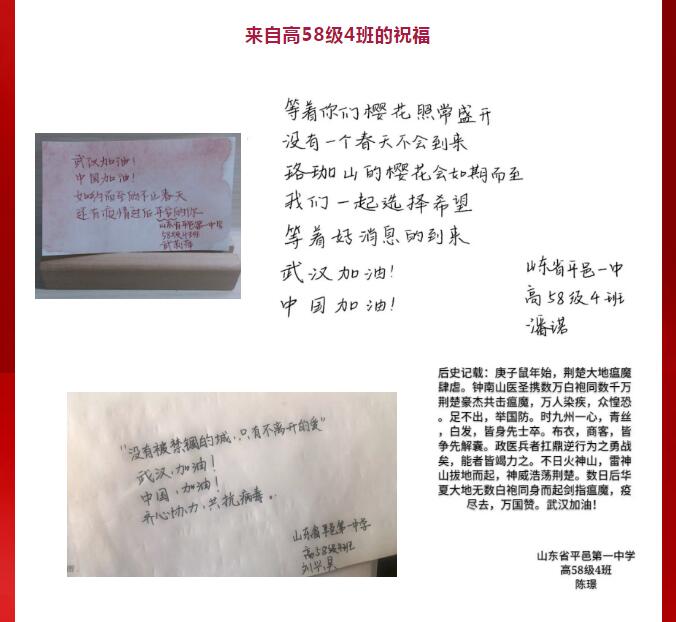 来自高58级4班的祝福
武汉加油！
中国加油！
如约而至的不止春天
还有疫情过后平安的你
山东省平邑第一中学
58级4班
等着你们樱花照常盛开
没有一个春天不会到来
珞珈山的樱花会如期而至
我们一起选择希望
等着好消息的到来
武汉加油！
中国加油！
山东省平邑一中
高58级4班
潘诺
"没有被禁锢的城，只有不离开的爱"
武汉，加油！
中国，加油！
齐心协力，共抗病毒。
山东省平邑第一中学
高58级4班
刘兴昊
后史记载：庚子鼠年始，荆楚大地瘟魔
肆虐。钟南山医圣携数万白袍同数千万
荆楚豪杰共击瘟魔，万人染疾，众惶恐
。足不出，举国防。时九州一心，青丝
，白发，皆身先士卒。布衣，商客，皆
争先解囊。政医兵者扛鼎逆行为之勇战
矣，能者皆竭力之。不日火神山，雷神
山拔地而起，神威浩荡荆楚。数日后华
夏大地无数白袍同身而起剑指瘟魔，疫
尽去，万国赞。武汉加油！
山东省平邑第一中学
高58级4班
陈璟